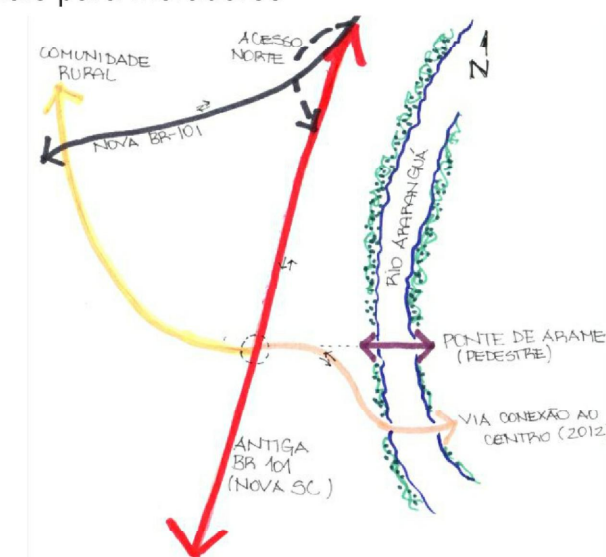 COMUNIDADE
RURAL
ACESSO
NORTE
N
NOVA BR-101
RIO ARARANGUÁ
PONTE DE ARAME
(PEDESTRE)
VIA CONEXÃO AO
CENTRO (2012
ANTIGA
BR 101
(NOVA SC)